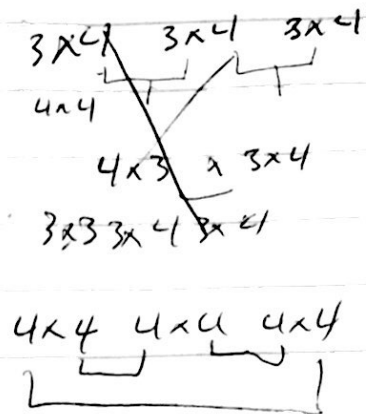 3×4 3×4 3×4
4×4
4×3 × 3×4
3×3 3×4 3×4
4×4 4×4 4×4